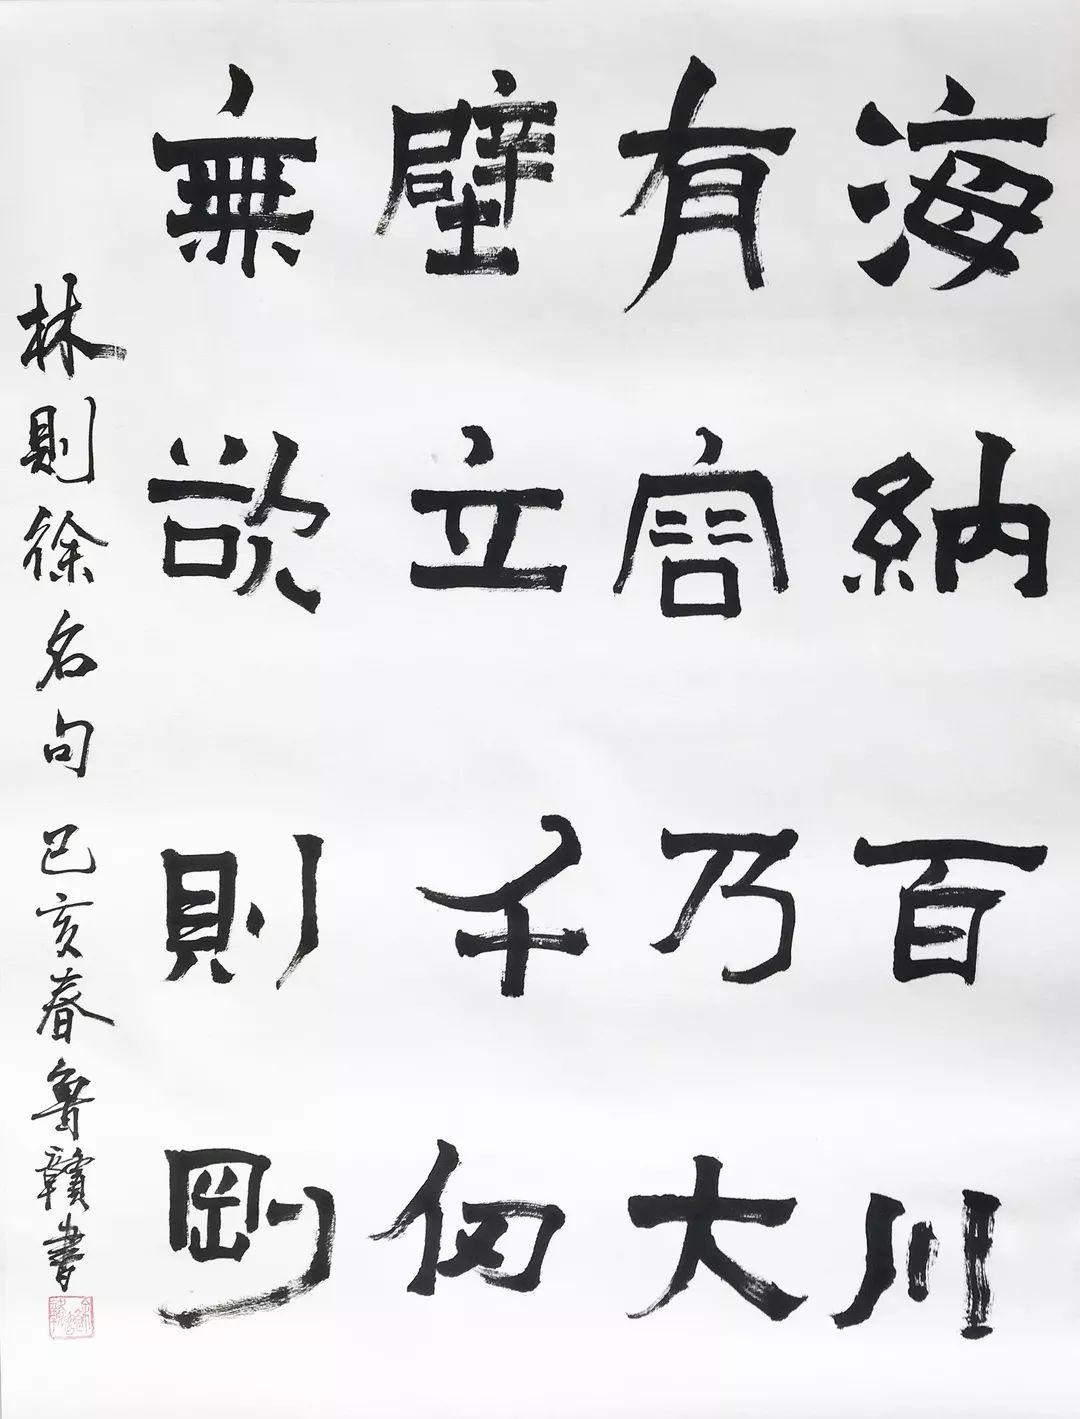 海納百川
有容乃大
壁立千仞
無欲則剛
林則徐名句 己亥春 魯贛書